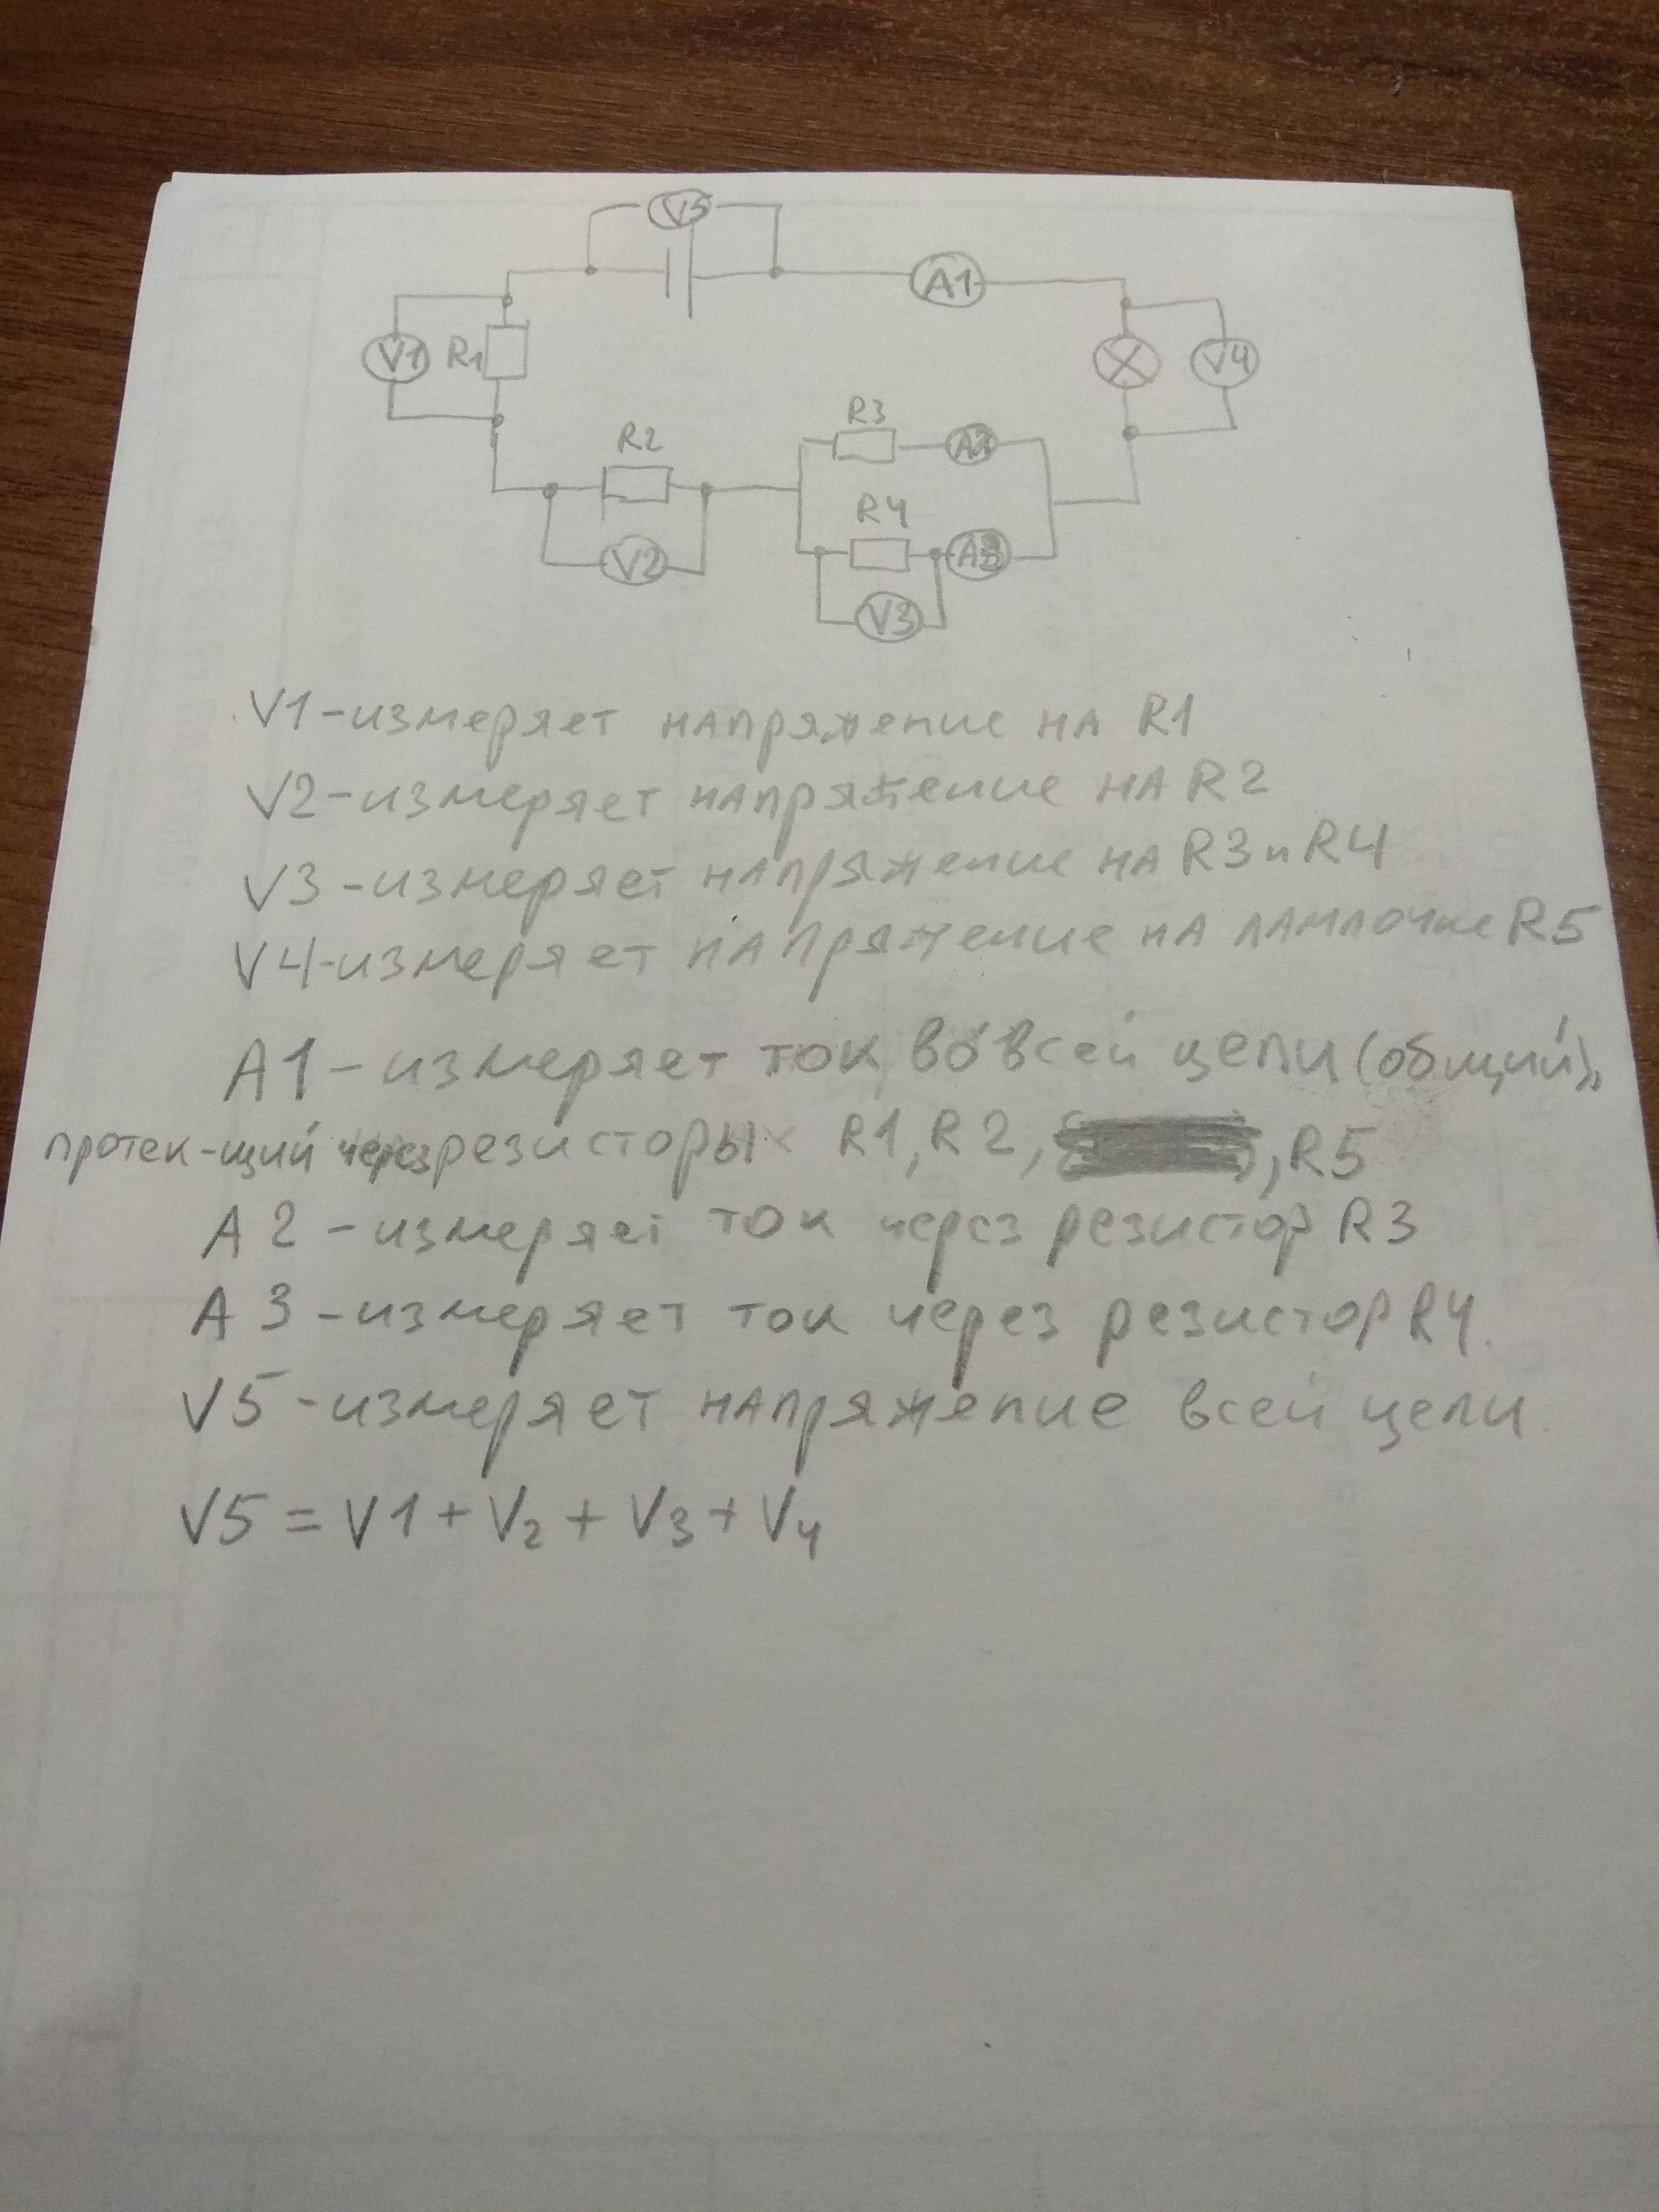 V5
A1
V1 R1
V4
R3
A2
R2
R4
A3
V2
V3
V1-измеряет напряжение на R1
V2-измеряет напряжение на R2
V3-измеряет напряжение на R3 и R4
V4-измеряет напряжение на лампочке R5
A1-измеряет ток во всей цепи (общий),
протек-щий через резисторы R1, R2, , R5
A2-измеряет ток через резистор R3
A3-измеряет ток через резистор R4.
V5-измеряет напряжение всей цепи.
V5 = V1 + V2 + V3 + V4